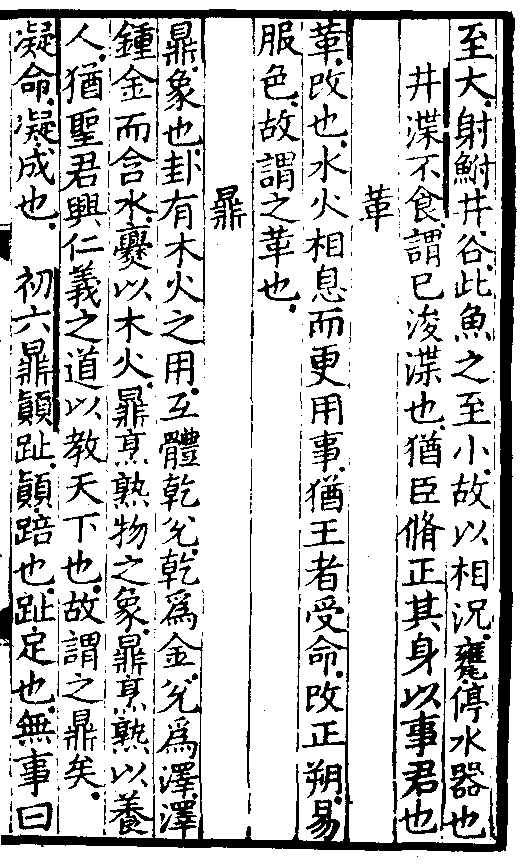 至大.射鮒井.谷.此魚之至小.故以相況.甕.停水器也
井渫不食.謂已浚渫也.猶臣脩正其身以事君也
革
革.改也.水火相息而更用事.猶王者受命.改正朔.易
服色.故謂之革也.
鼎
鼎.象也.卦有木火之用.互體乾兌.乾爲金.兌爲澤.澤
鍾金而含水.爨以木火.鼎烹熟物之象.鼎烹熟以養
人.猶聖君興仁義之道以教天下也.故謂之鼎矣.
凝命.凝成也. 初六鼎顚趾.顚踣也.趾定也.無事曰